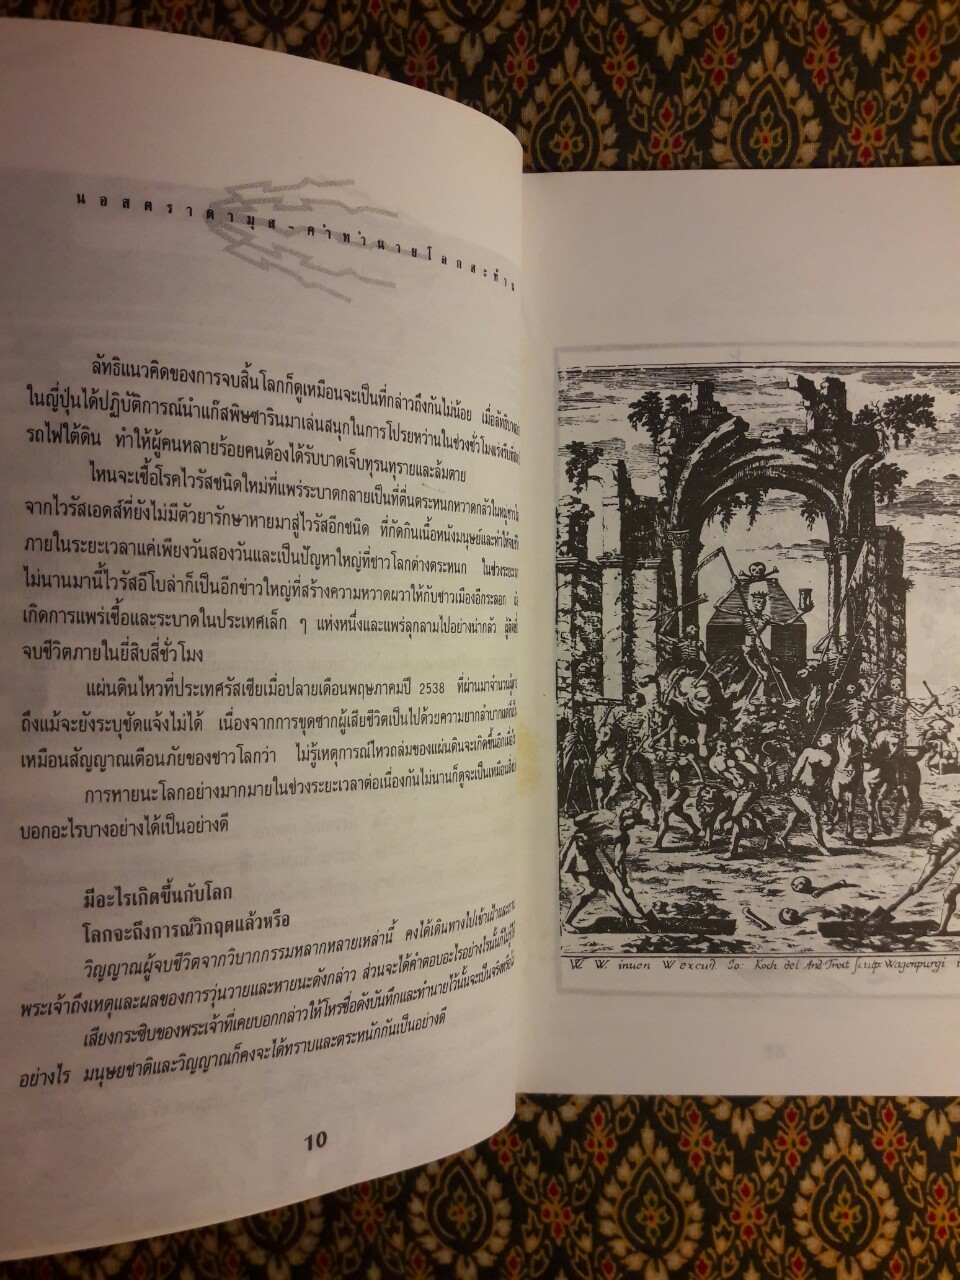 นอสตราดามุส-คำทำนายโลกสะท้าน
ลัทธิแนวคิดของการจบสิ้นโลกก็ดูเหมือนจะเป็นที่กล่าวถึงกันไม่น้อย เมื่อลัทธิ
ในญี่ปุ่นได้ปฏิบัติการณ์นำแก๊สพิษซารินมาเล่นสนุกในการโปรยหว่านในช่วงชั่วโมงเร่งรีบ
รถไฟใต้ดิน ทำให้ผู้คนหลายร้อยคนต้องได้รับบาดเจ็บทุรนทุรายและล้มตาย
ไหนจะเชื้อโรคไวรัสชนิดใหม่ที่แพร่ระบาดกลายเป็นที่ตื่นตระหนกหวาดกลัวใน
จากไวรัสเอดส์ที่ยังไม่มีตัวยารักษาหายมาสู่ไวรัสอีกชนิด ที่กัดกินเนื้อหนังมนุษย์และทำให้
ภายในระยะเวลาแค่เพียงวันสองวันและเป็นปัญหาใหญ่ที่ชาวโลกต่างตระหนก ในช่วงระยะ
ไม่นานมานี้ไวรัสอีโบล่าก็เป็นอีกข่าวใหญ่ที่สร้างความหวาดผวาให้กับชาวเมืองอีกระลอก
เกิดการแพร่เชื้อและระบาดในประเทศเล็ก ๆ แห่งหนึ่งและแพร่ลุกลามไปอย่างน่ากลัว
จบชีวิตภายในยี่สิบสี่ชั่วโมง
แผ่นดินไหวที่ประเทศรัสเซียเมื่อปลายเดือนพฤษภาคมปี 2538 ที่ผ่านมาจำนวน
ถึงแม้จะยังระบุชัดแจ้งไม่ได้ เนื่องจากการขุดซากผู้เสียชีวิตเป็นไปด้วยความยากลำบาก
เหมือนสัญญาณเตือนภัยของชาวโลกว่า ไม่รู้เหตุการณ์ไหวถล่มของแผ่นดินจะเกิดขึ้นอีก
การหายนะโลกอย่างมากมายในช่วงระยะเวลาต่อเนื่องกันไม่นานก็ดูจะเป็นเหมือน
บอกอะไรบางอย่างได้เป็นอย่างดี
มีอะไรเกิดขึ้นกับโลก
โลกจะถึงการณ์วิกฤตแล้วหรือ
วิญญาณผู้จบชีวิตจากวิบากกรรมหลากหลายเหล่านี้ คงได้เดินทางไปเข้าเฝ้าและถาม
พระเจ้าถึงเหตุและผลของการวุ่นวายและหายนะดังกล่าว ส่วนจะได้คำตอบอะไรอย่างไรนั้น
เสียงกระซิบของพระเจ้าที่เคยบอกกล่าวให้โหรชื่อดังบันทึกและทำนายไว้นั้นจะเป็นจริงหรือ
อย่างไร มนุษยชาติและวิญญาณก็คงจะได้ทราบและตระหนักกันเป็นอย่างดี
10
W. W. inuen W excud. Io: Koch del. And: Trost sculp: Wagenpurgi